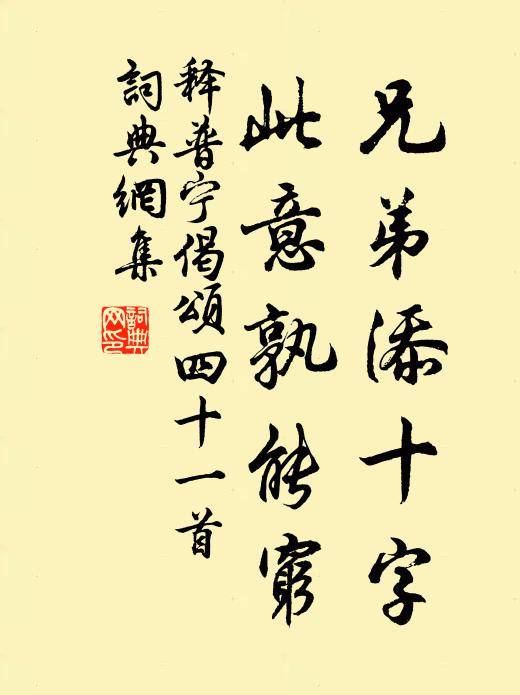 兄弟添十字
此意孰能窮
释普宁偈頌四十一首
詞典網集
詞典网印